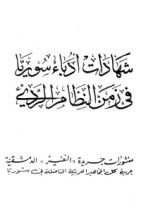 شهادات أدباء سوريا
في زمن النظام الردي
منشورات جريدة «التغيير» الدمشقية
جريدة كل الجماهير العربية المناضلة في سوريا